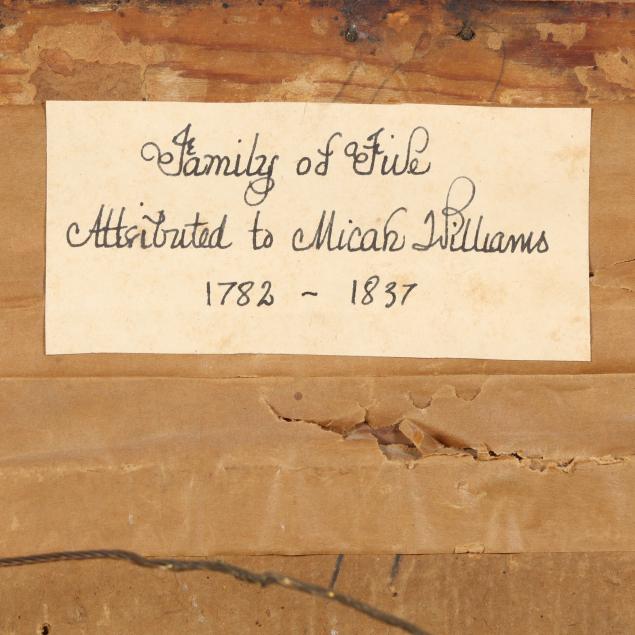 Family of Five
Attributed to Micah Williams
1782 ~ 1837